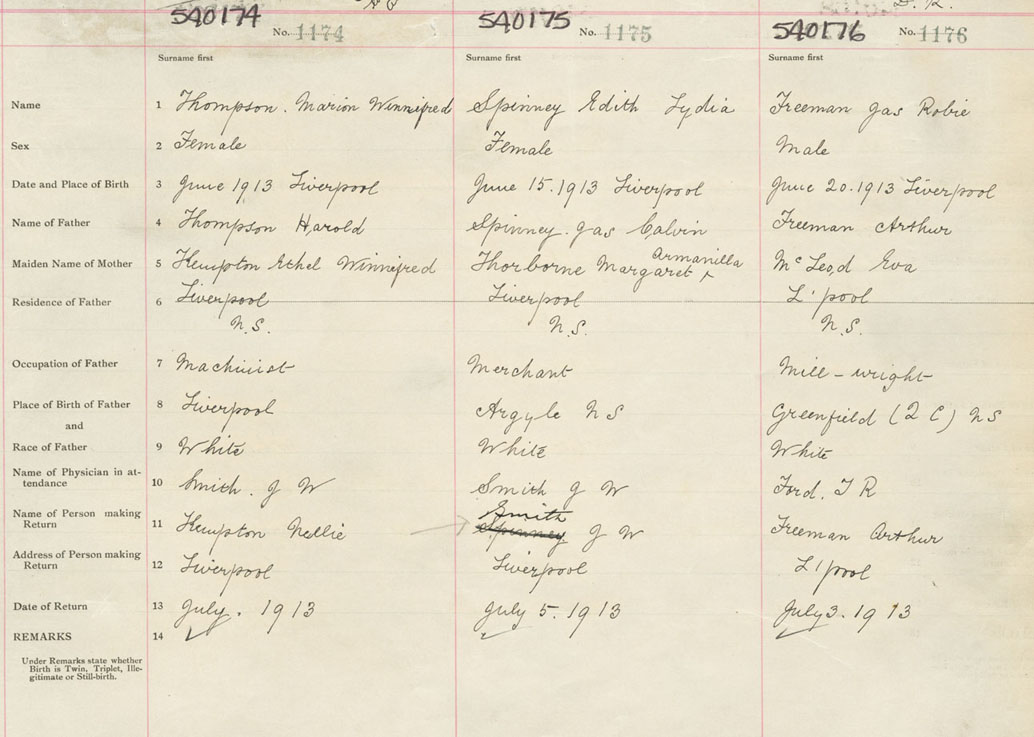 540174 No. 1174 540175 No. 1175 540176 No. 1176
Surname first Surname first Surname first
Name 1 Thompson. Marion Winnifred Spinney Edith Lydia Freeman Jas Robie
Sex 2 Female Female Male
Date and Place of Birth 3 June 1913 Liverpool June 15.1913 Liverpool June 20.1913 Liverpool
Name of Father 4 Thompson Harold Spinney. Jas Calvin Freeman Arthur
Armanilla
Maiden Name of Mother 5 Kempton Ethel Winnifred Thorborne Margaret x McLeod Eva
Residence of Father 6 Liverpool Liverpool L'pool
N.S. N.S. N.S.
Occupation of Father 7 Machinist Merchant Mill-wright
Place of Birth of Father 8 Liverpool Argyle N S Greenfield (2 C) N S
and
Race of Father 9 White White White
Name of Physician in at-
tendance 10 Smith. J W Smith J W Ford. T R
Name of Person making Smith
Return 11 Kempton Nellie Spinney J W Freeman Arthur
Address of Person making
Return 12 Liverpool Liverpool L'pool
Date of Return 13 July. 1913 July 5.1913 July 3.1913
REMARKS 14
Under Remarks state whether
Birth is Twin, Triplet, Ille-
gitimate or Still-birth.